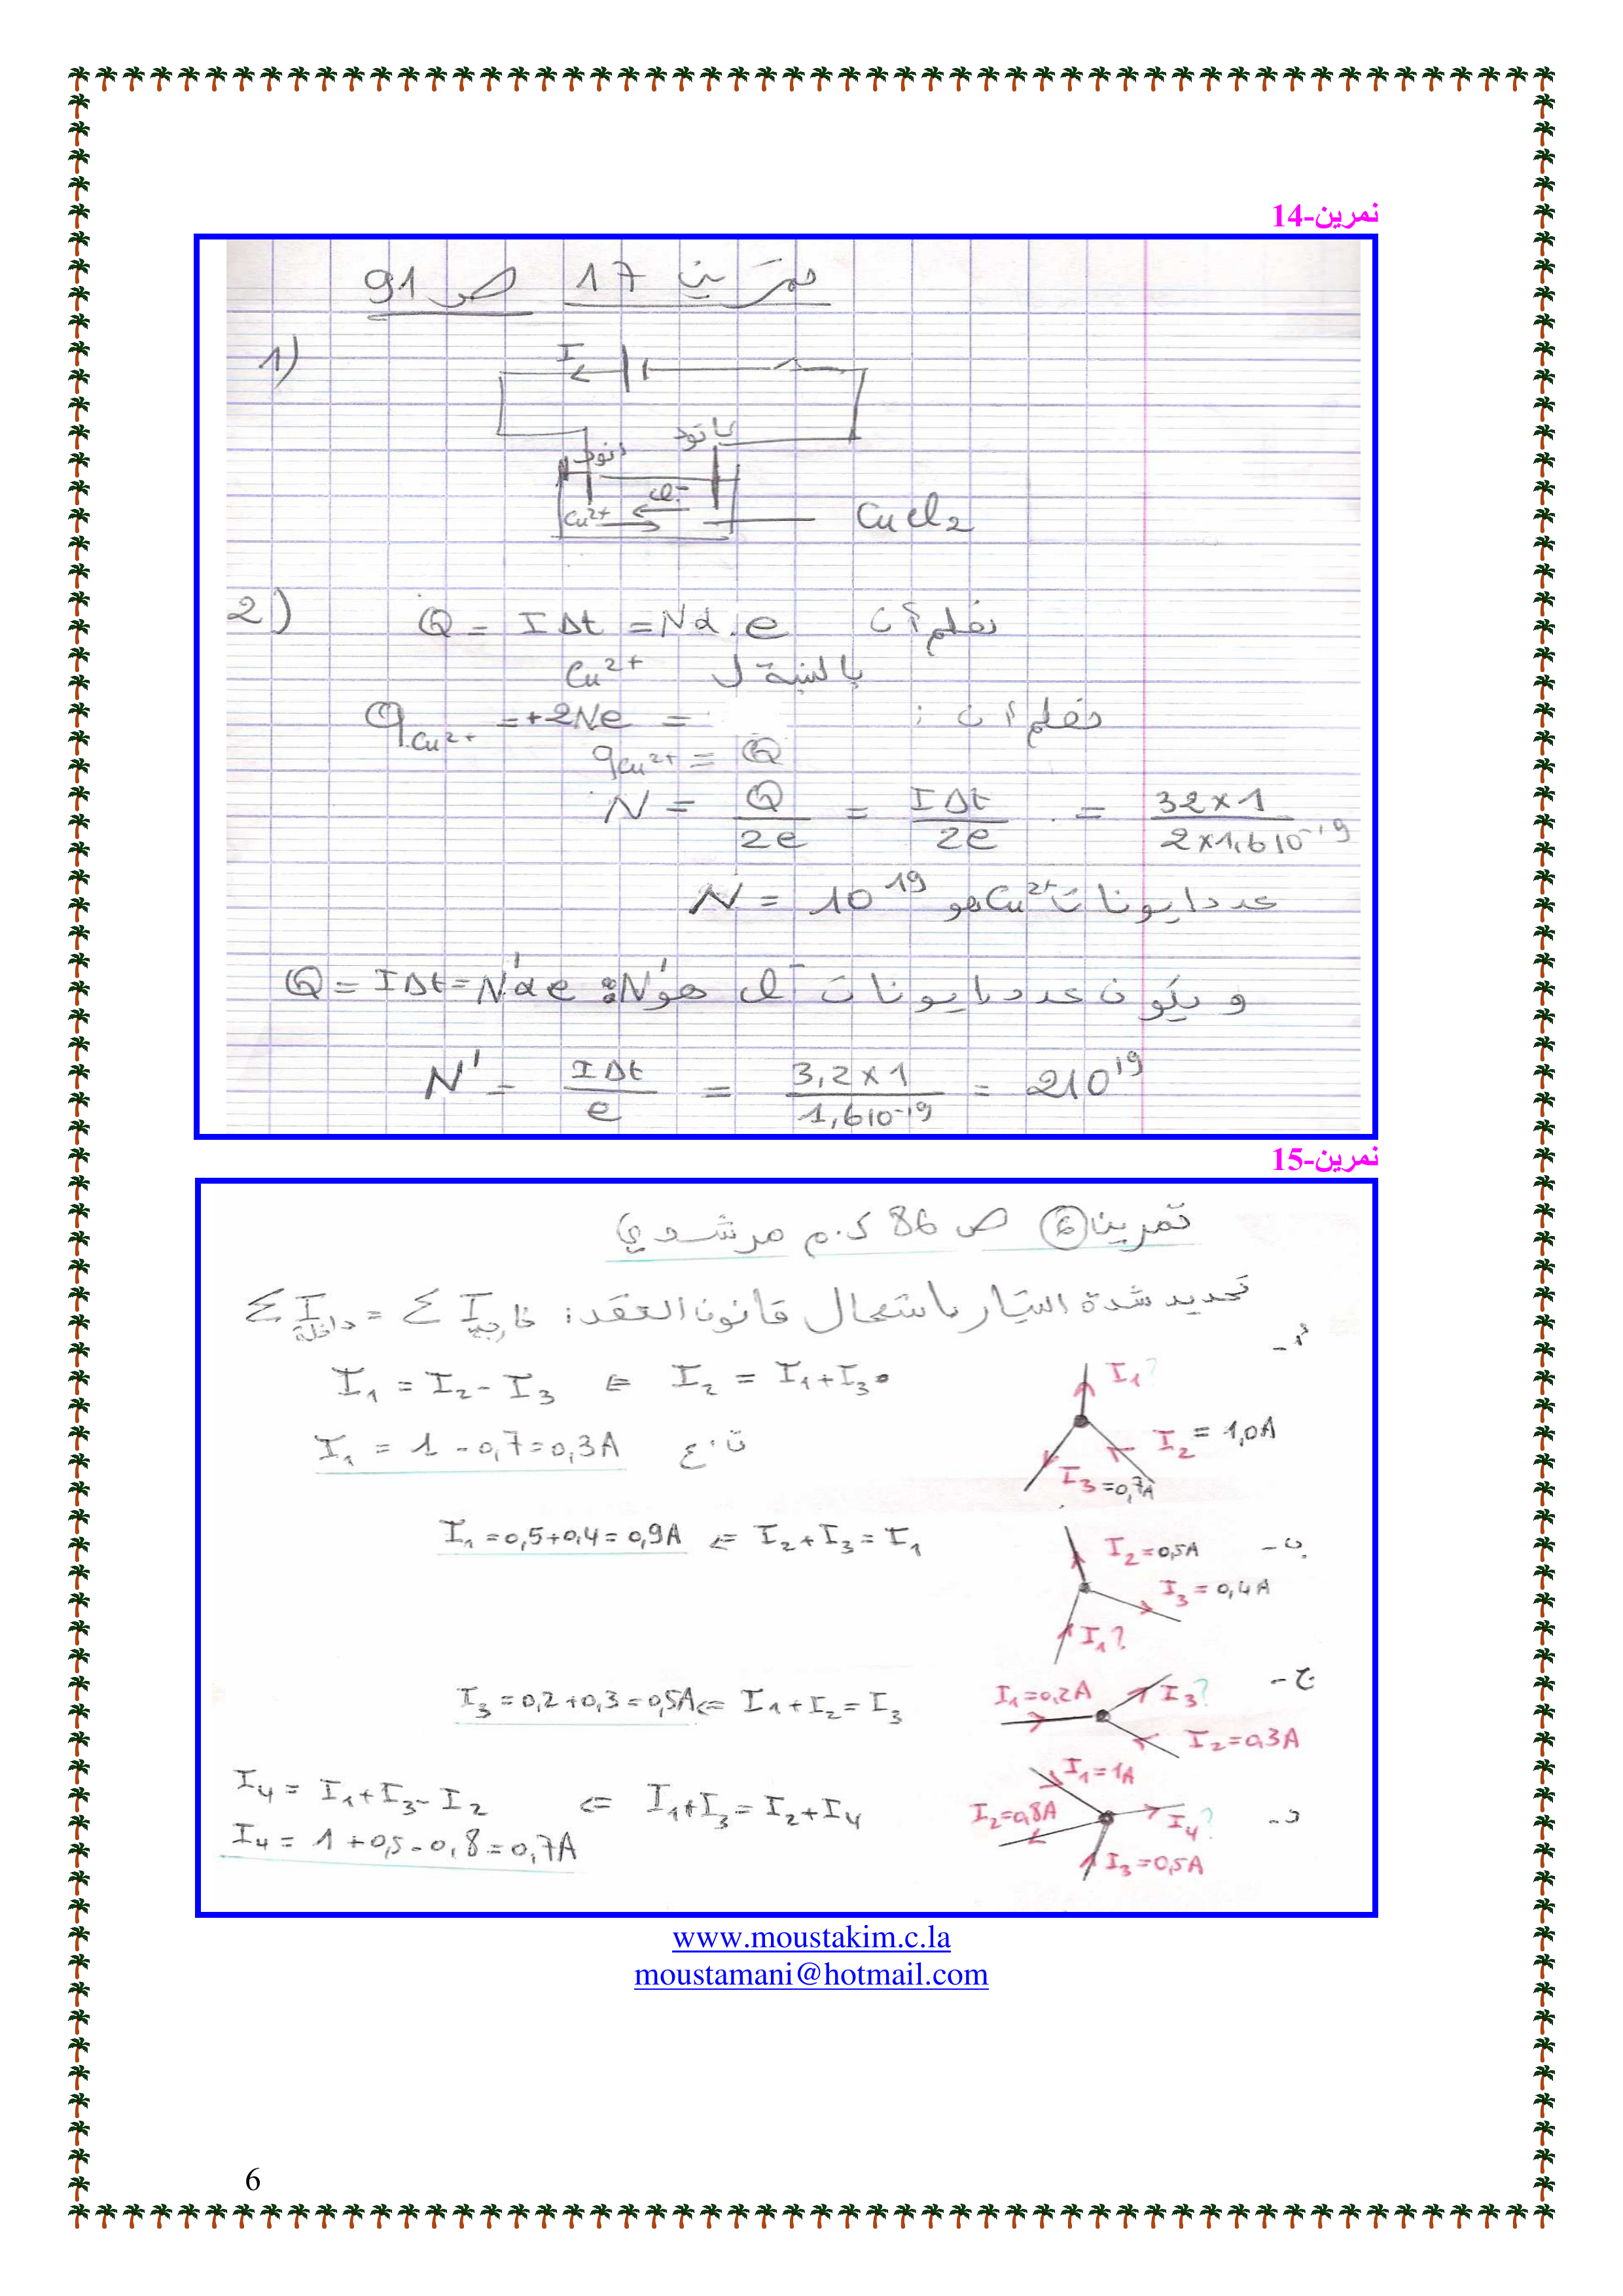 تمرين-14
تمرين 17 ص 91
1)
I
أنود كاتود
Cl-
Cu2+
CuCl2
2) نعلم أن Q = IΔt = Nα.e
بالنسبة ل Cu2+
نعلم أن : qCu2+ = +2Ne =
qCu2+ = Q
N = Q/2e = IΔt/2e = 32×1/2×1,6 10-19
عدد ايونات Cu2+ هو N = 10 19
و يكون عدد ايونات Cl- هو N' : Q = IΔt = N'αe
N' = IΔt/e = 3,2×1/1,6 10-19 = 2 10 19
تمرين-15
تمرين 6 ص 86 ك.م مرشدي
تحديد شدة التيار باستعمال قانون العقد: ΣI داخلة = ΣI خارجية
أ-
I1 = I2 - I3 ⇐ I2 = I1 + I3
I1 ?
I2 = 1,0A
ت.ع I1 = 1 - 0,7 = 0,3A
I3 = 0,7A
I1 = 0,5+0,4 = 0,9A ⇐ I2 + I3 = I1
ب-
I2 = 0,5A
I3 = 0,4A
I1 ?
ج-
I3 = 0,2+0,3 = 0,5A ⇐ I1 + I2 = I3
I1 = 0,2A
I3 ?
I2 = 0,3A
I4 = I1 + I3 - I2 ⇐ I1 + I3 = I2 + I4
I4 = 1 + 0,5 - 0,8 = 0,7A
د-
I1 = 1A
I2 = 0,8A
I4 ?
I3 = 0,5A
www.moustakim.c.la
moustamani@hotmail.com
6